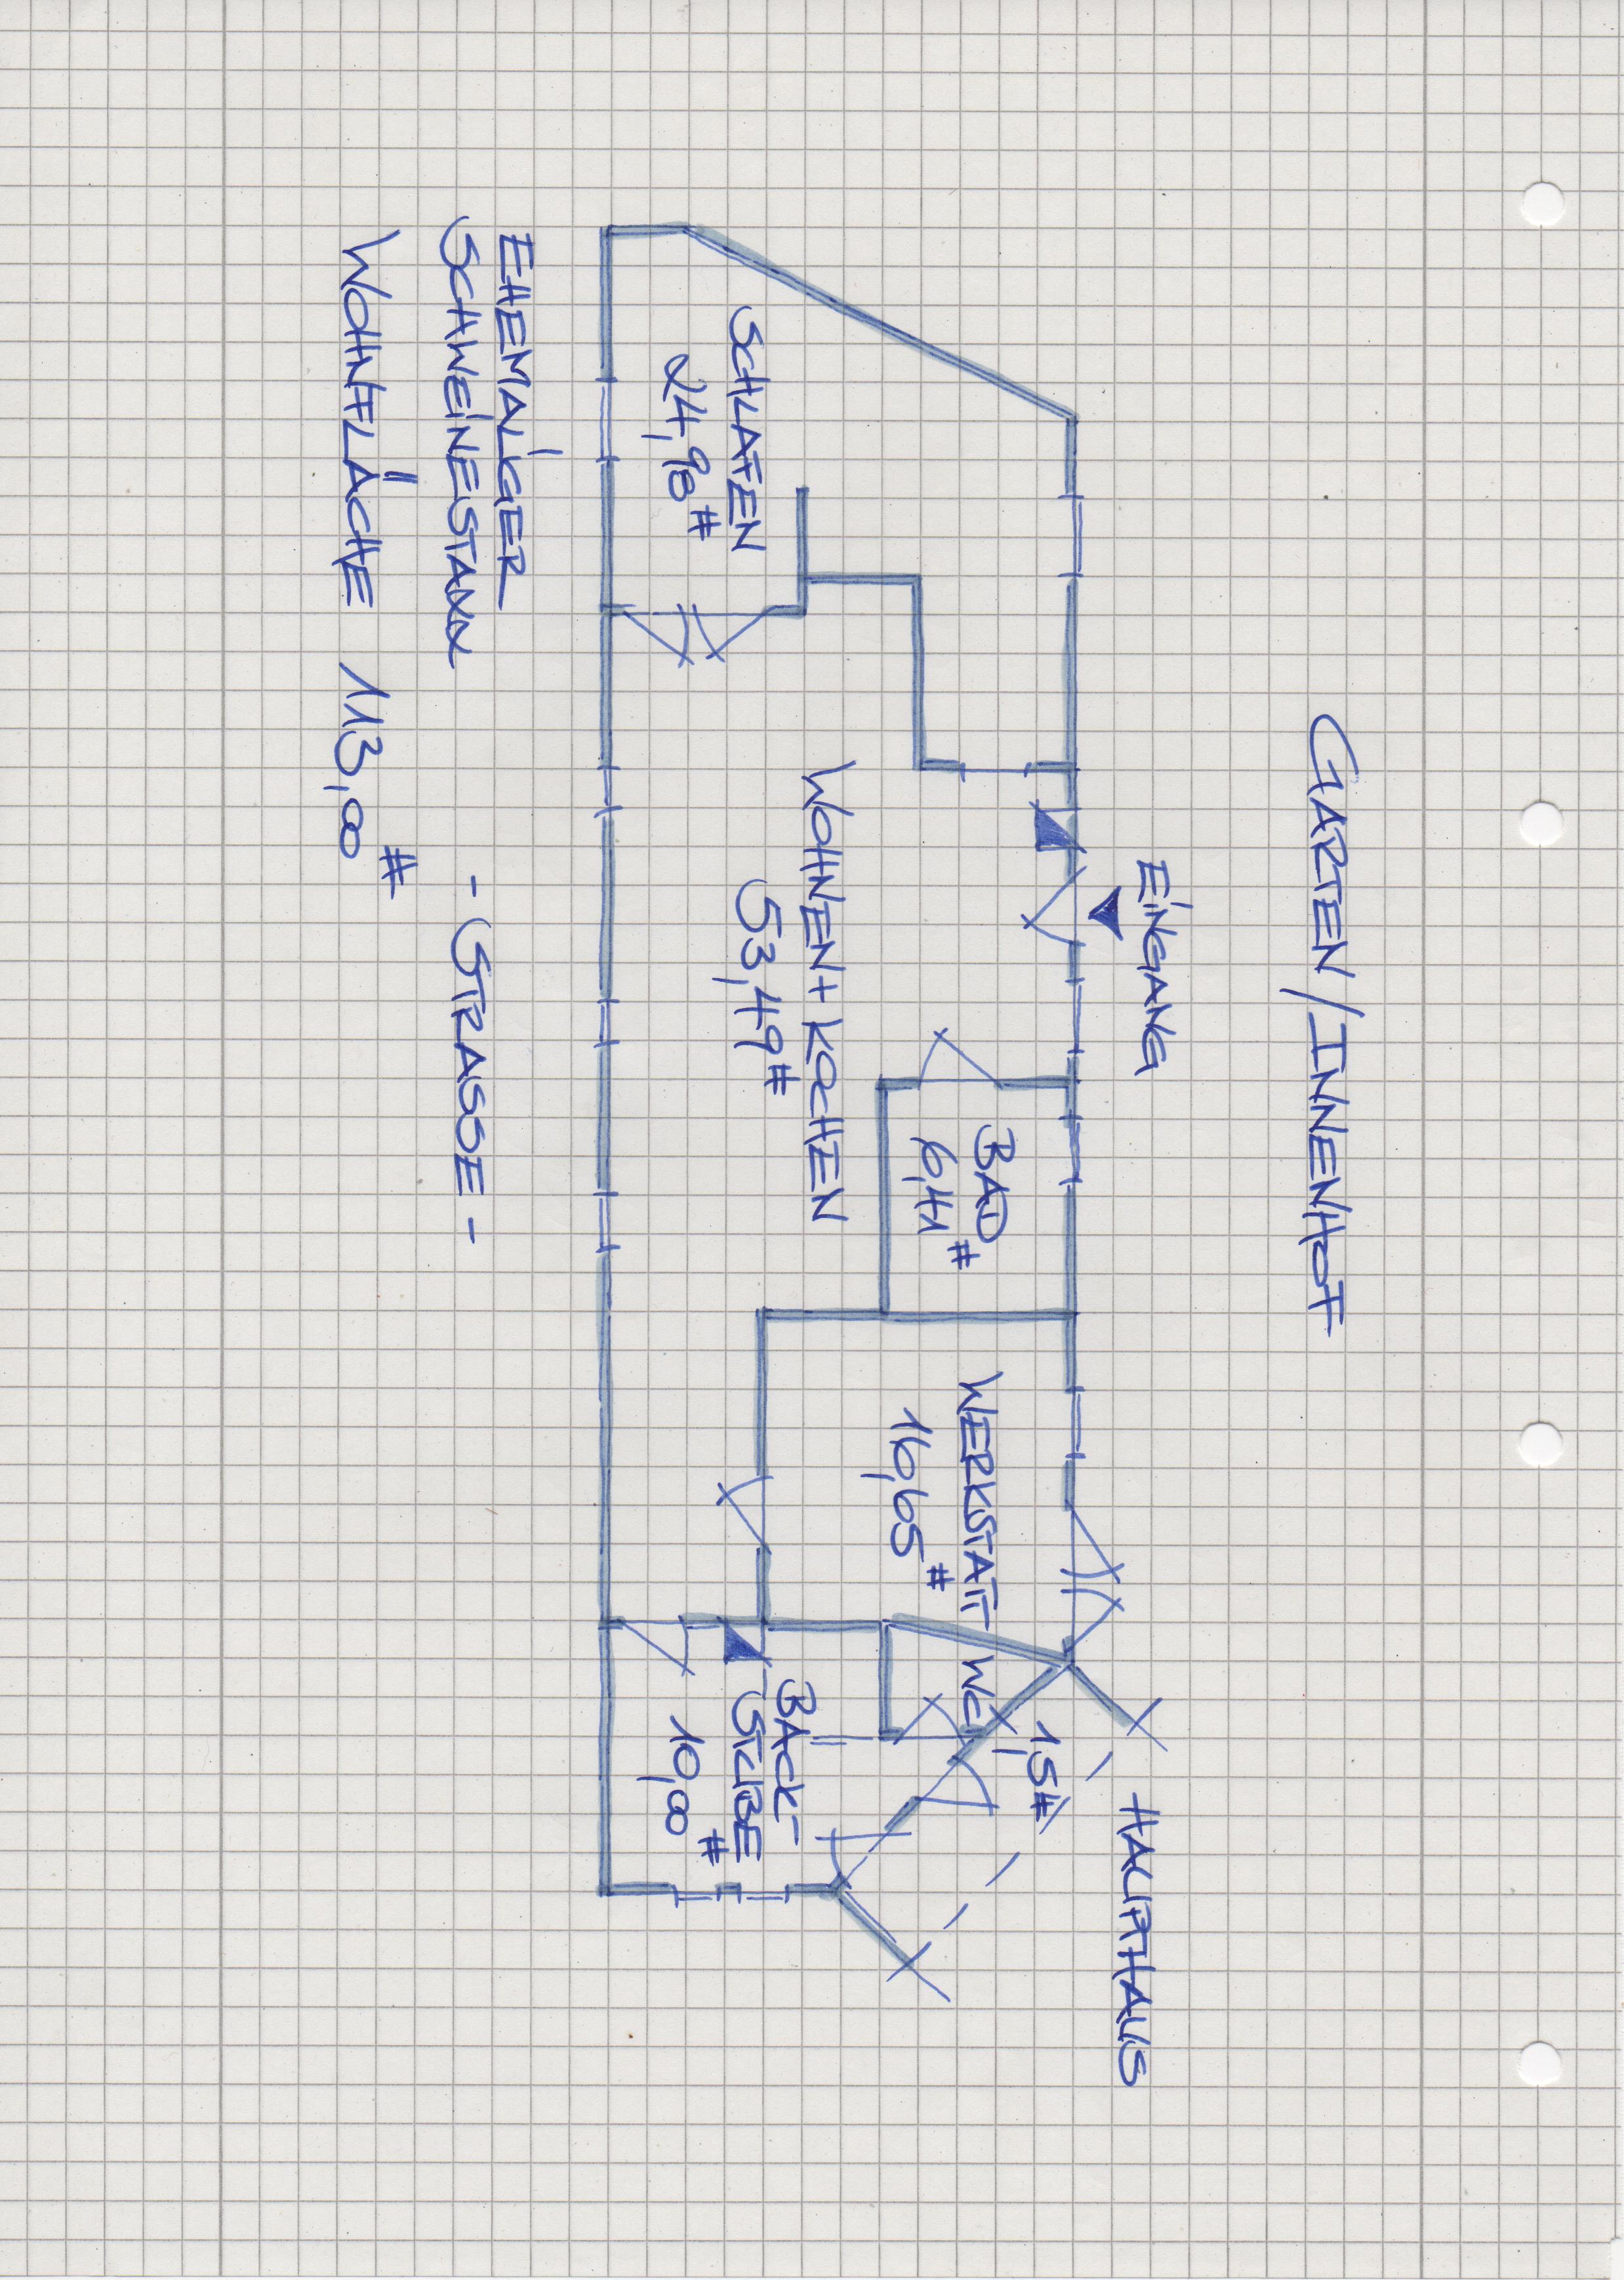 GARTEN/INNENHOF
EINGANG
HAUPTHAUS
BAD
6,41 #
WERKSTATT
16,65 #
WC
1,5 #
WOHNEN + KOCHEN
53,49 #
SCHLAFEN
24,98 #
BACK-
STUBE
10,00 #
EHEMALIGER
SCHWEINESTALL
- STRASSE -
WOHNFLÄCHE 113,00 #